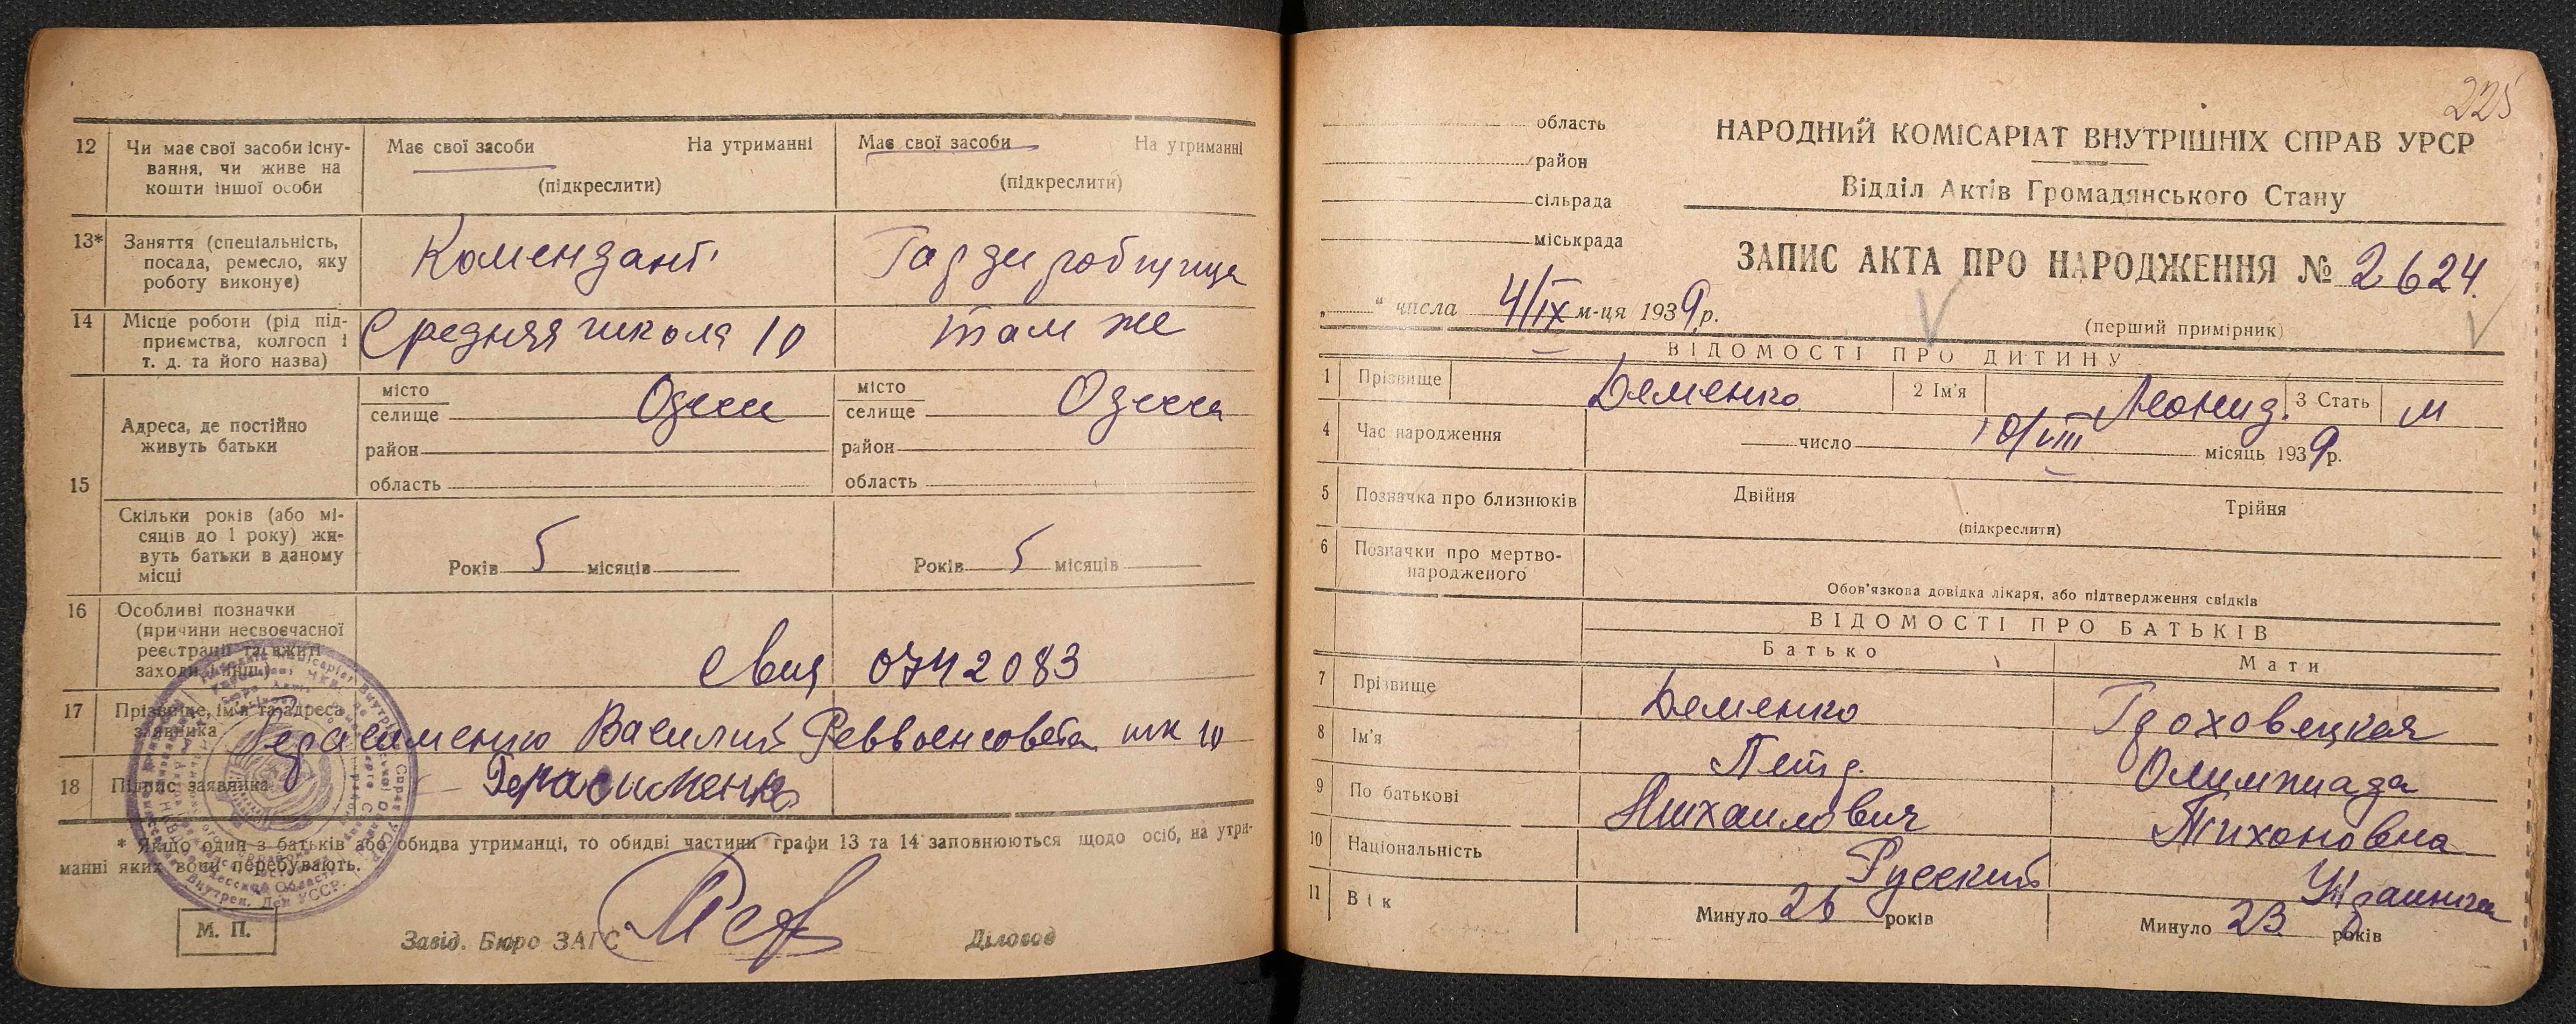 12 Чи має свої засоби існу-
вання, чи живе на
кошти іншої особи
Має свої засоби На утриманні
(підкреслити)
Має свої засоби На утриманні
(підкреслити)
13* Заняття (спеціальність,
посада, ремесло, яку
роботу виконує)
Комендант
Гардиробщица
14 Місце роботи (рід під-
приємства, колгосп і
т. д. та його назва)
Средняя школа 10
там же
15 Адреса, де постійно
живуть батьки
місто
селище Одесса
район
область
місто
селище Одесса
район
область
Скільки років (або мі-
сяців до 1 року) жи-
вуть батьки в даному
місці
Років 5 місяців
Років 5 місяців
16 Особливі позначки
(причини несвоєчасної
реєстрації та вжиті
заходи і инші)
0742083
17 Прізвище, ім'я та адреса
заявника
Герасименко Василий Реввоенсовета шк 10
18 Підпис заявника
Герасименко
* Якщо один з батьків або обидва утриманці, то обидві частини графи 13 та 14 заповнюються щодо осіб, на утри-
манні яких вони перебувають.
М. П.
Завід. Бюро ЗАГС
Діловод
225
область
район
сільрада
міськрада
НАРОДНИЙ КОМІСАРІАТ ВНУТРІШНІХ СПРАВ УРСР
Відділ Актів Громадянського Стану
ЗАПИС АКТА ПРО НАРОДЖЕННЯ № 2624.
„ “ числа 4/IX м-ця 1939 р.
(перший примірник)
ВІДОМОСТІ ПРО ДИТИНУ
1 Прізвище Деменко 2 Ім'я Леонид. 3 Стать М
4 Час народження число 10/VIII місяць 1939 р.
5 Позначка про близнюків Двійня Трійня
(підкреслити)
6 Позначки про мертво-
народженого
Обов'язкова довідка лікаря, або підтвердження свідків
ВІДОМОСТІ ПРО БАТЬКІВ
Батько Мати
7 Прізвище Деменко Гроховецкая
8 Ім'я Петр. Олимпиада
9 По батькові Михаилович Тихоновна
10 Національність Русский Украинка
11 Вік Минуло 26 років Минуло 23 років